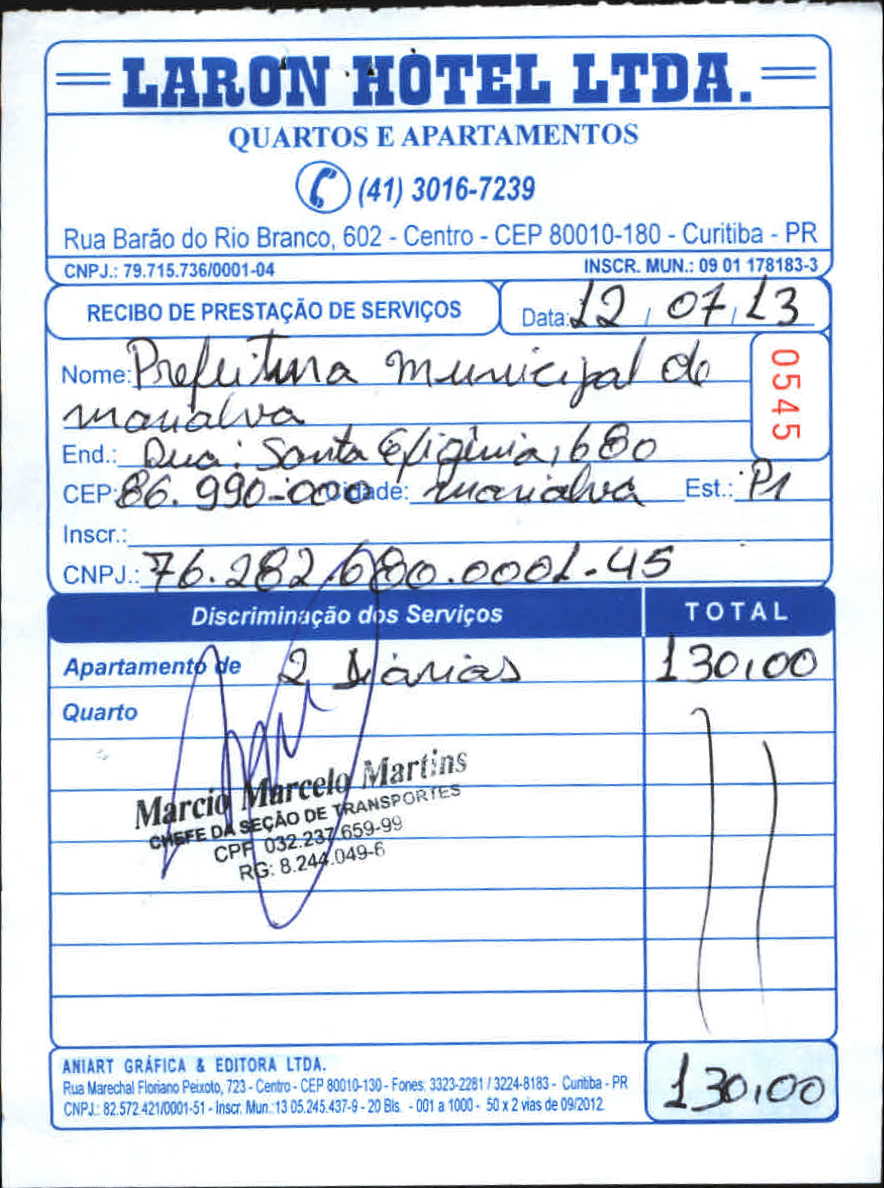 LARON HOTEL LTDA.
QUARTOS E APARTAMENTOS
(41) 3016-7239
Rua Barão do Rio Branco, 602 - Centro - CEP 80010-180 - Curitiba - PR
CNPJ.: 79.715.736/0001-04 INSCR. MUN.: 09 01 178183-3
RECIBO DE PRESTAÇÃO DE SERVIÇOS Data: 12 / 07 / 13
Nome: Prefeitura municipal de
marialva
0545
End.: Rua: Santa Efigênia, 680
CEP: 86.990-000 Cidade: marialva Est.: Pr
Inscr.:
CNPJ.: 76.282.680.0001-45
Discriminação dos Serviços TOTAL
Apartamento de 2 Diárias 130,00
Quarto
Marcio Marcelo Martins
CHEFE DA SEÇÃO DE TRANSPORTES
CPF 032.237.659-99
RG: 8.244.049-6
ANIART GRÁFICA & EDITORA LTDA.
Rua Marechal Floriano Peixoto, 723 - Centro - CEP 80010-130 - Fones: 3323-2281 / 3224-8183 - Curitiba - PR
CNPJ.: 82.572.421/0001-51 - Inscr. Mun.:13 05.245.437-9 - 20 Bls. - 001 a 1000 - 50 x 2 vias de 09/2012
130,00